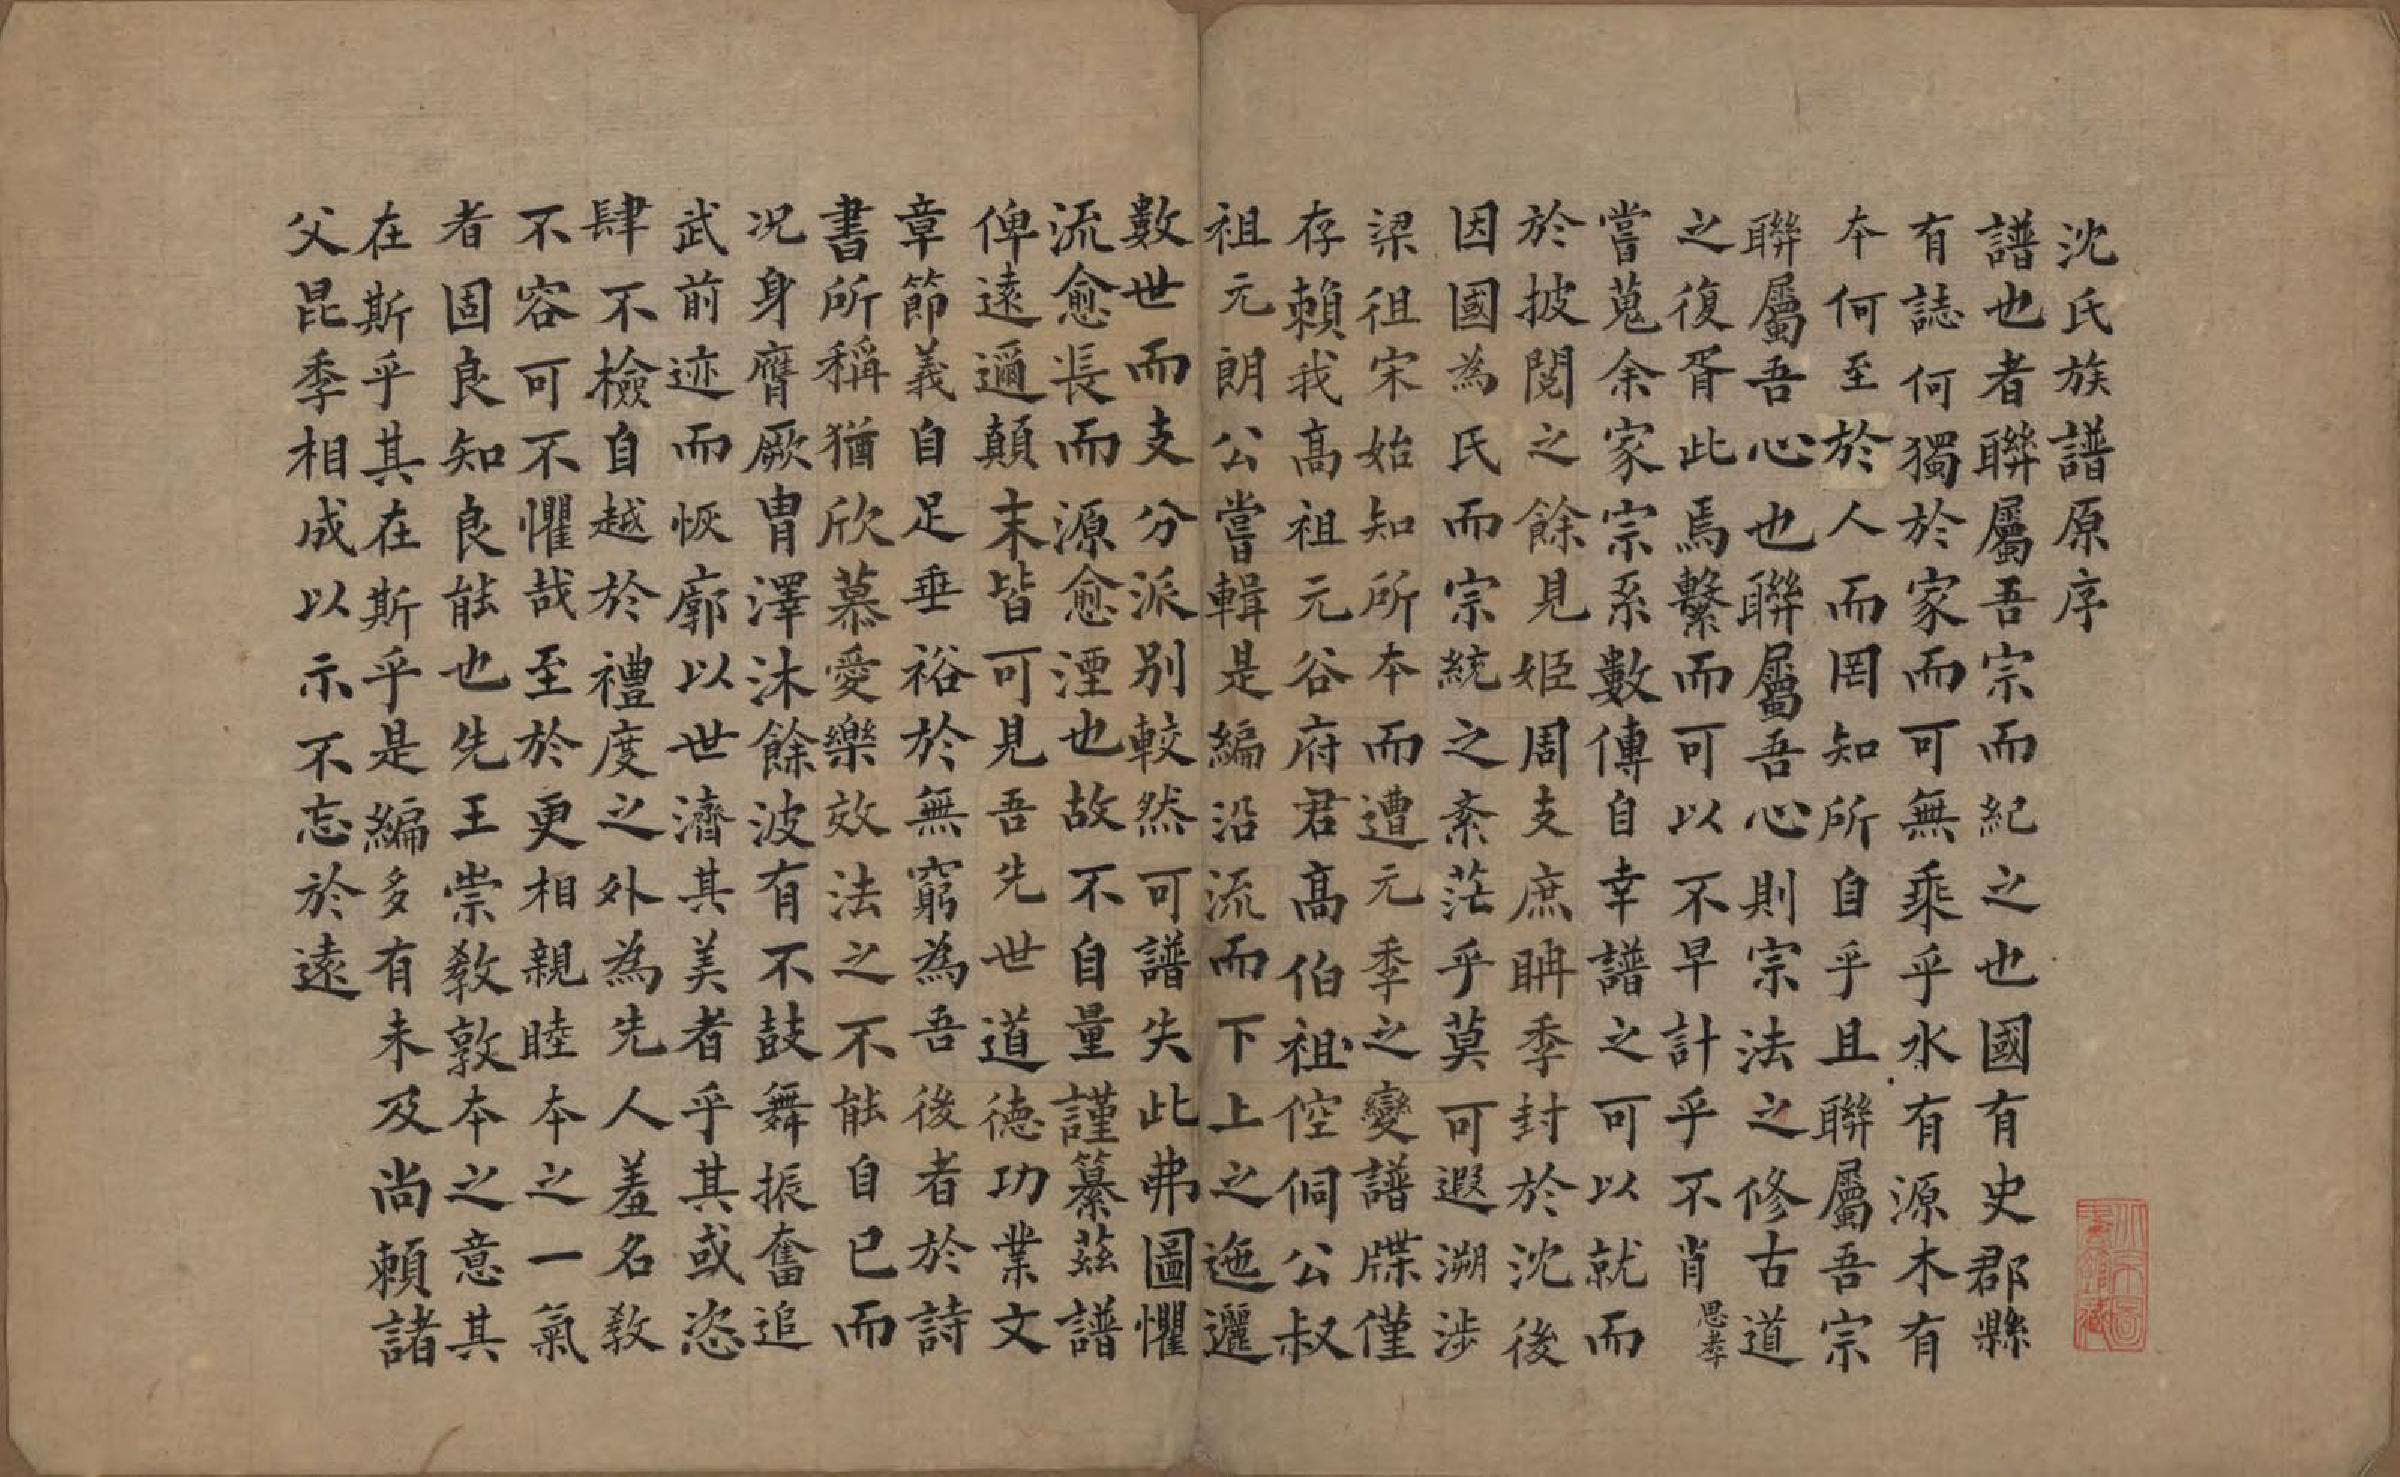 沈氏族譜原序
譜也者聯屬吾宗而紀之也國有史郡縣
有誌何獨於家而可無乘乎水有源木有
本何至於人而罔知所自乎且聯屬吾宗
聯屬吾心也聯屬吾心則宗法之修古道
之復胥此焉繫而可以不早計乎不肖思孝
嘗蒐余家宗系數傳自幸譜之可以就而
於披閱之餘見姬周支庶聃季封於沈後
因國為氏而宗統之紊茫乎莫可遐溯涉
梁徂宋始知所本而遭元季之變譜牒僅
存賴我高祖元谷府君高伯祖倥侗公叔
祖元朗公嘗輯是編沿流而下上之迤邐
數世而支分派別較然可譜失此弗圖懼
流愈長而源愈湮也故不自量謹纂茲譜
俾遠邇顛末皆可見吾先世道德功業文
章節義自足垂裕於無窮為吾後者於詩
書所稱猶欣慕愛樂效法之不能自已而
况身膺厥冑澤沐餘波有不鼓舞振奮追
武前迹而恢廓以世濟其美者乎其或恣
肆不檢自越於禮度之外為先人羞名教
不容可不懼哉至於更相親睦本之一氣
者固良知良能也先王崇教敦本之意其
在斯乎其在斯乎是編多有未及尚賴諸
父昆季相成以示不忘於遠